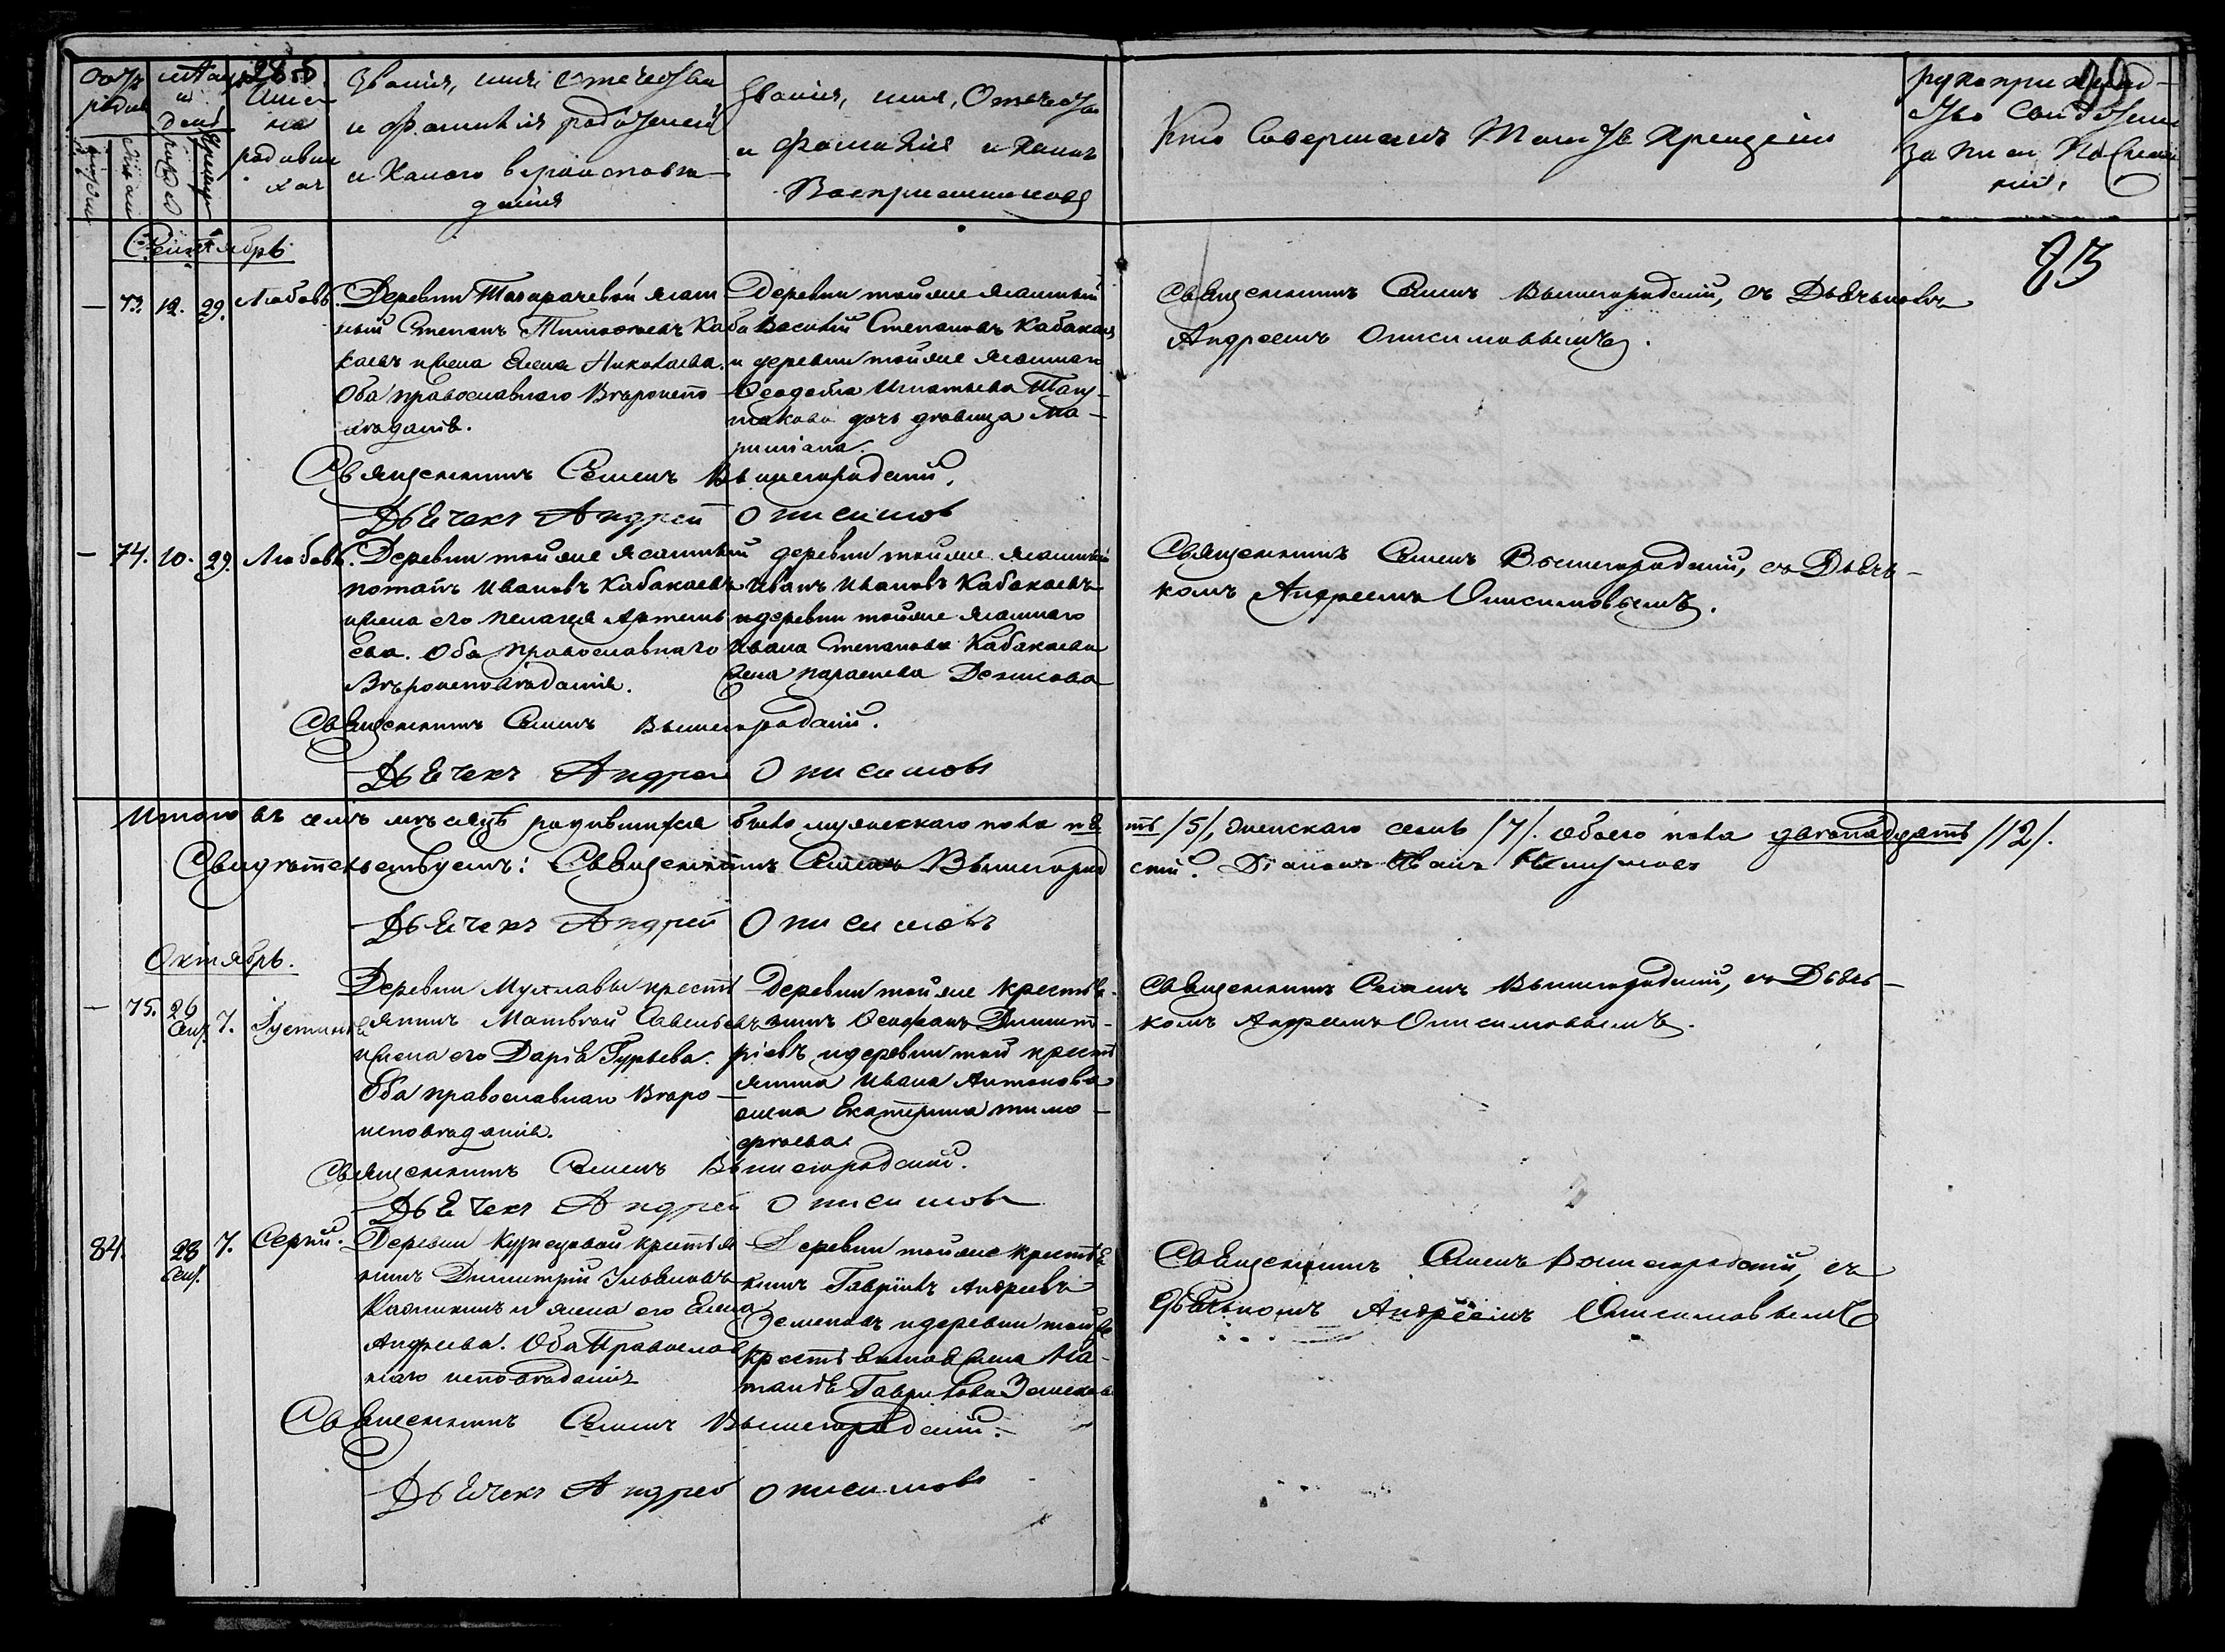 Счетъ родив
Мѣсяцъ и день
Имена родившихся
Званія, имя отечество
и фамилія родителей
и какого вѣроисповѣ
данія
Званія, имя, отечество
и фамилія и какихъ
Воспріемниковъ
Кто Совершалъ Таинство крещенія
рукоприклад-
ство Свидѣтелей
записи по желанію
83
Сентябрь
— 73. 12. 29. Любовь.
Деревни Токарачевой ясаш
ный Степанъ Тимофеевъ Каба
каевъ и жена Елена Николаева.
Оба православнаго Вѣроиспо
вѣданія.
Деревни той же ясашный
Василій Степановъ Кабакаевъ
и деревни той же ясашнаго
Феодота Игнатьева
дочь дѣвица Ма-
риміана.
Священникъ Семенъ Вышегородскій, съ Дьячькомъ
Андреемъ Онисимовымъ.
Священникъ Семенъ Вышегородскій.
Дьячекъ Андрей Онисимовъ
— 74. 10. 29. Любовь.
Деревни той же ясашный
потапъ Ивановъ Кабакаевъ
и жена его пелагея Артемь
ева. Оба православнаго
Вѣроисповѣданія.
деревни той же ясашный
Иванъ Ивановъ Кабакаевъ
и деревни той же ясашнаго
Ивана Степанова Кабакаева
жена парасева Денисова
Священникъ Семенъ Вышегородскій, съ Дьячь-
комъ Андреемъ Онисимовымъ.
Священникъ Семенъ Вышегородскій.
Дьячекъ Андрей Онисимовъ
Итого въ семъ мѣсяцѣ родившихся было мужескаго пола пять /5/, женскаго семь /7/. обоего пола двѣнадцать /12/.
Свидѣтельствуемъ: Священникъ Семенъ Вышегородскій. Діаконъ Иванъ
Дьячекъ Андрей Онисимовъ
Октябрь.
— 75. 26 Сен. 7. Іустинія
Деревни Муславы кресть
янинъ Матвѣй Савельевъ
и жена его Дарія Гурьева.
Оба православнаго Вѣро-
исповѣданія.
Деревни той же крестья-
нинъ Феофанъ Димит-
ріевъ, и деревни той кресть
янина Ивана Антонова
жена Екатерина тимо-
фѣева.
Священникъ Семенъ Вышегородскій, съ Дьячь-
комъ Андреемъ Онисимовымъ.
Священникъ Семенъ Вышегородскій.
Дьячекъ Андрей Онисимовъ
84. 28 Сен. 7. Сергій.
Деревни Кузнецовой крестья
нинъ Димитрій Іаковлевъ
и жена его Елена
Андреева. Оба Православ
наго исповѣданія
Деревни той же крестья
нинъ Гавріилъ Андреевъ
Земековъ и деревни той же
крестьянина жена На-
талья Гаврилова Земекова
Священникъ Семенъ Вышегородскій, съ
дьячькомъ Андреемъ Онисимовымъ
Священникъ Семенъ Вышегородскій.
Дьячекъ Андрей Онисимовъ